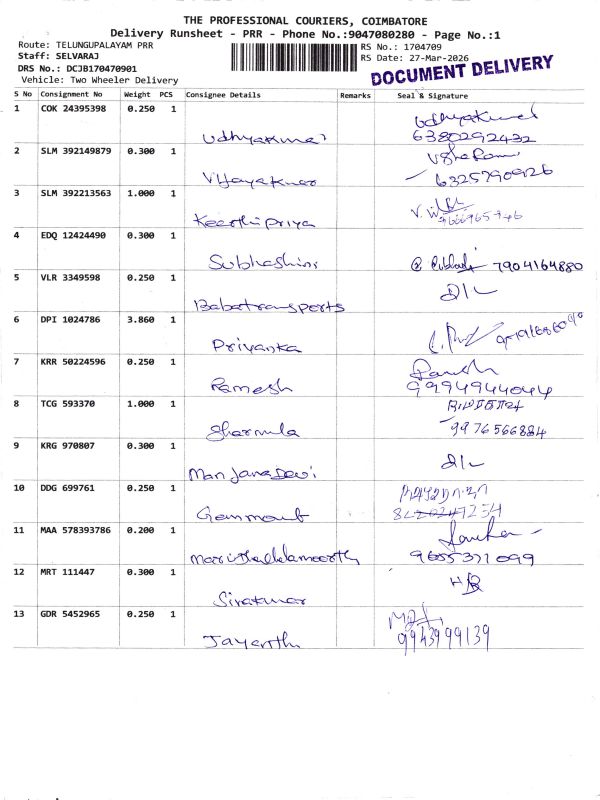 THE PROFESSIONAL COURIERS, COIMBATORE
Delivery Runsheet - PRR - Phone No.:9047080280 - Page No.:1
Route: TELUNGUPALAYAM PRR
Staff: SELVARAJ
DRS No.: DCJB170470901
Vehicle: Two Wheeler Delivery
RS No.: 1704709
RS Date: 27-Mar-2026
DOCUMENT DELIVERY
S No Consignment No Weight PCS Consignee Details Remarks Seal & Signature
1 COK 24395398 0.250 1
Udhyakumar 6380292432
2 SLM 392149879 0.300 1
Vijayakumar
3 SLM 392213563 1.000 1
Keerthipriya
4 EDQ 12424490 0.300 1
Subhashini 7904164880
5 VLR 3349598 0.250 1
Babatransports D/L
6 DPI 1024786 3.860 1
Priyanka
7 KRR 50224596 0.250 1
Ramesh 9994944044
8 TCG 593370 1.000 1
Sharmila 9976566884
9 KRG 970807 0.300 1
Manjanadevi D/L
10 DDG 699761 0.250 1
11 MAA 578393786 0.200 1
9655371099
12 MRT 111447 0.300 1
Sivakumar
13 GDR 5452965 0.250 1
Jayanthi 9943999139